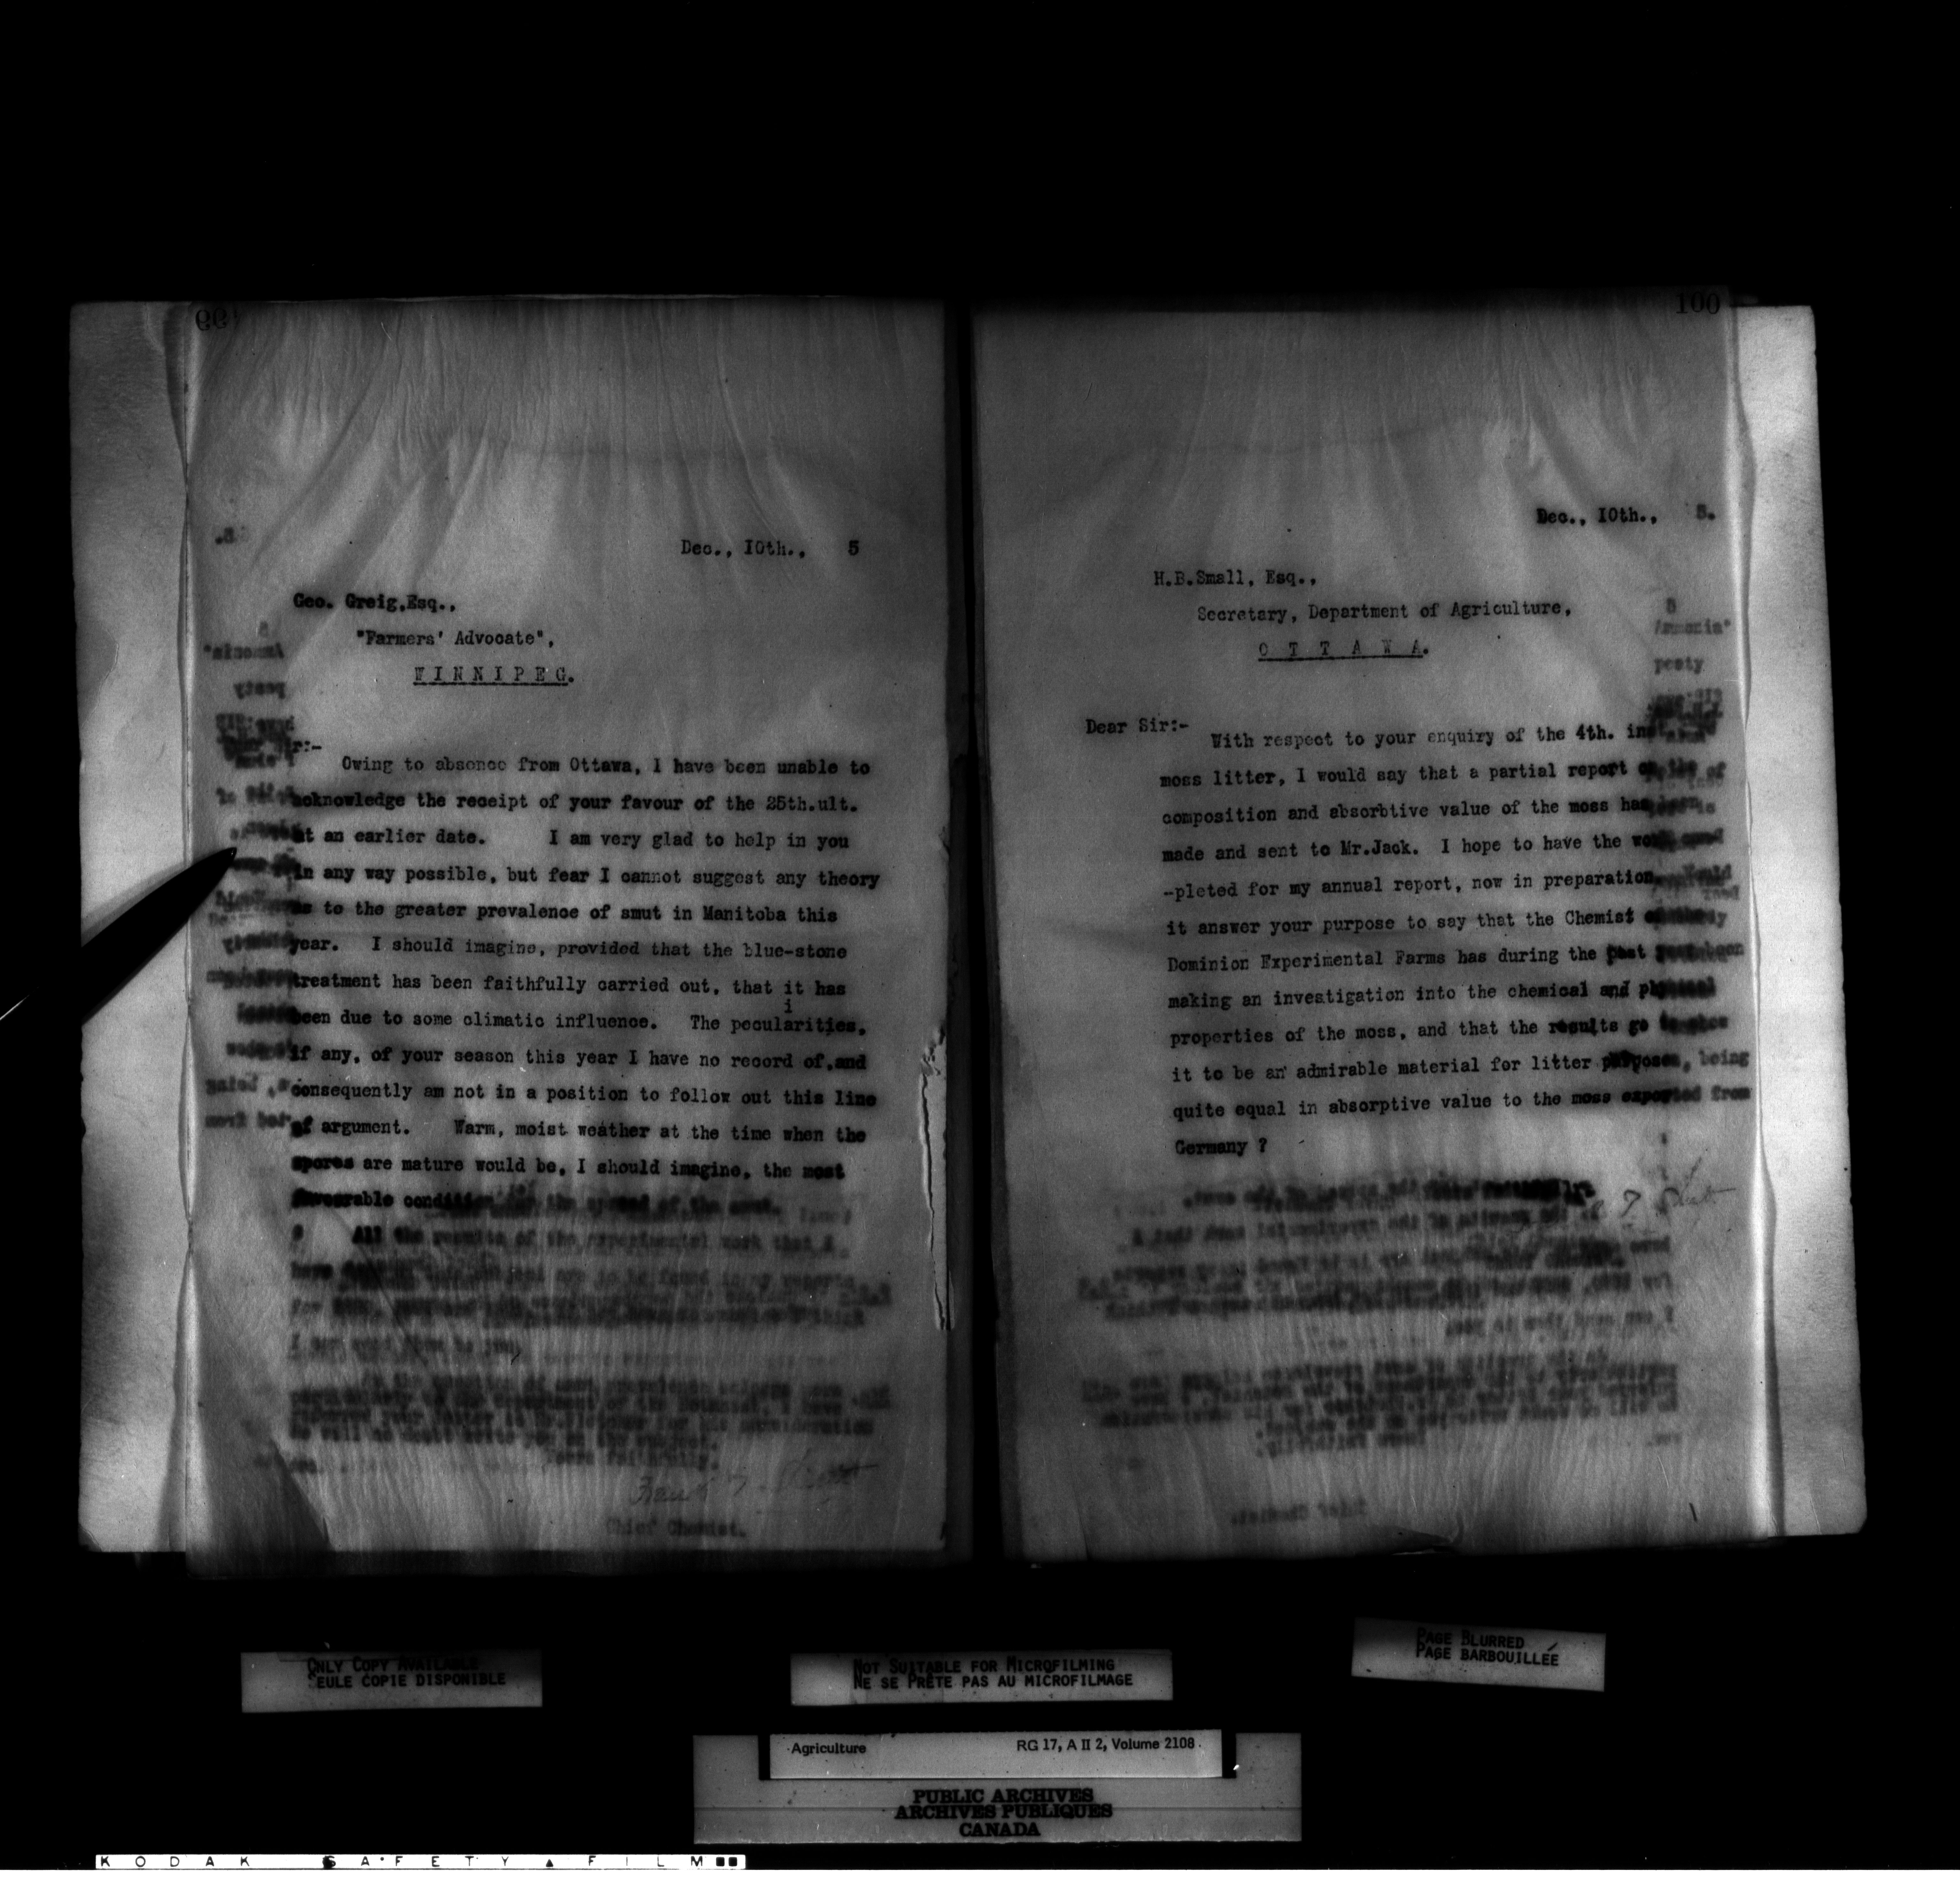 99
Dec., 10th., 5
Geo. Greig,Esq.,
"Farmers' Advocate",
WINNIPEG.
Sir:-
Owing to absence from Ottawa, I have been unable to
acknowledge the receipt of your favour of the 25th.ult.
at an earlier date. I am very glad to help in you
in any way possible, but fear I cannot suggest any theory
as to the greater prevalence of smut in Manitoba this
year. I should imagine, provided that the blue-stone
treatment has been faithfully carried out, that it has
been due to some climatic influence. The pecularities,
i
if any, of your season this year I have no record of,and
consequently am not in a position to follow out this line
of argument. Warm, moist weather at the time when the
spores are mature would be, I should imagine, the most
favourable condition for the spread of the smut.
All the results of the experimental work that I
have are to be found in my reports
for
I can send them to you,
In the
department of the Botanist, I have
your letter to for his consideration
He will no doubt write you on the subject.
Yours faithfully,
Frank T. Shutt
Chief Chemist.
100
Dec., 10th., 5.
H.B.Small, Esq.,
Secretary, Department of Agriculture,
OTTAWA.
Dear Sir:-
With respect to your enquiry of the 4th. inst.
moss litter, I would say that a partial report on the
composition and absorbtive value of the moss has been
made and sent to Mr.Jack. I hope to have the work
-pleted for my annual report, now in preparation. Would
it answer your purpose to say that the Chemist of the
Dominion Experimental Farms has during the past year been
making an investigation into the chemical and physical
properties of the moss, and that the results go to show
it to be an admirable material for litter purposes, being
quite equal in absorptive value to the moss exported from
Germany ?
T Shutt
5
Ammonia"
peaty
ONLY COPY AVAILABLE
SEULE COPIE DISPONIBLE
NOT SUITABLE FOR MICROFILMING
NE SE PRÊTE PAS AU MICROFILMAGE
PAGE BLURRED
PAGE BARBOUILLÉE
Agriculture RG 17, A II 2, Volume 2108
PUBLIC ARCHIVES
ARCHIVES PUBLIQUES
CANADA
KODAK SAFETY FILM